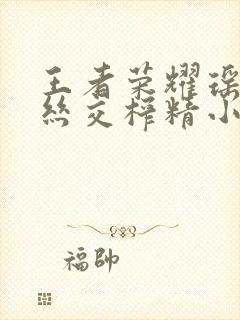 王者荣耀瑶
丝交榨精小
福帅